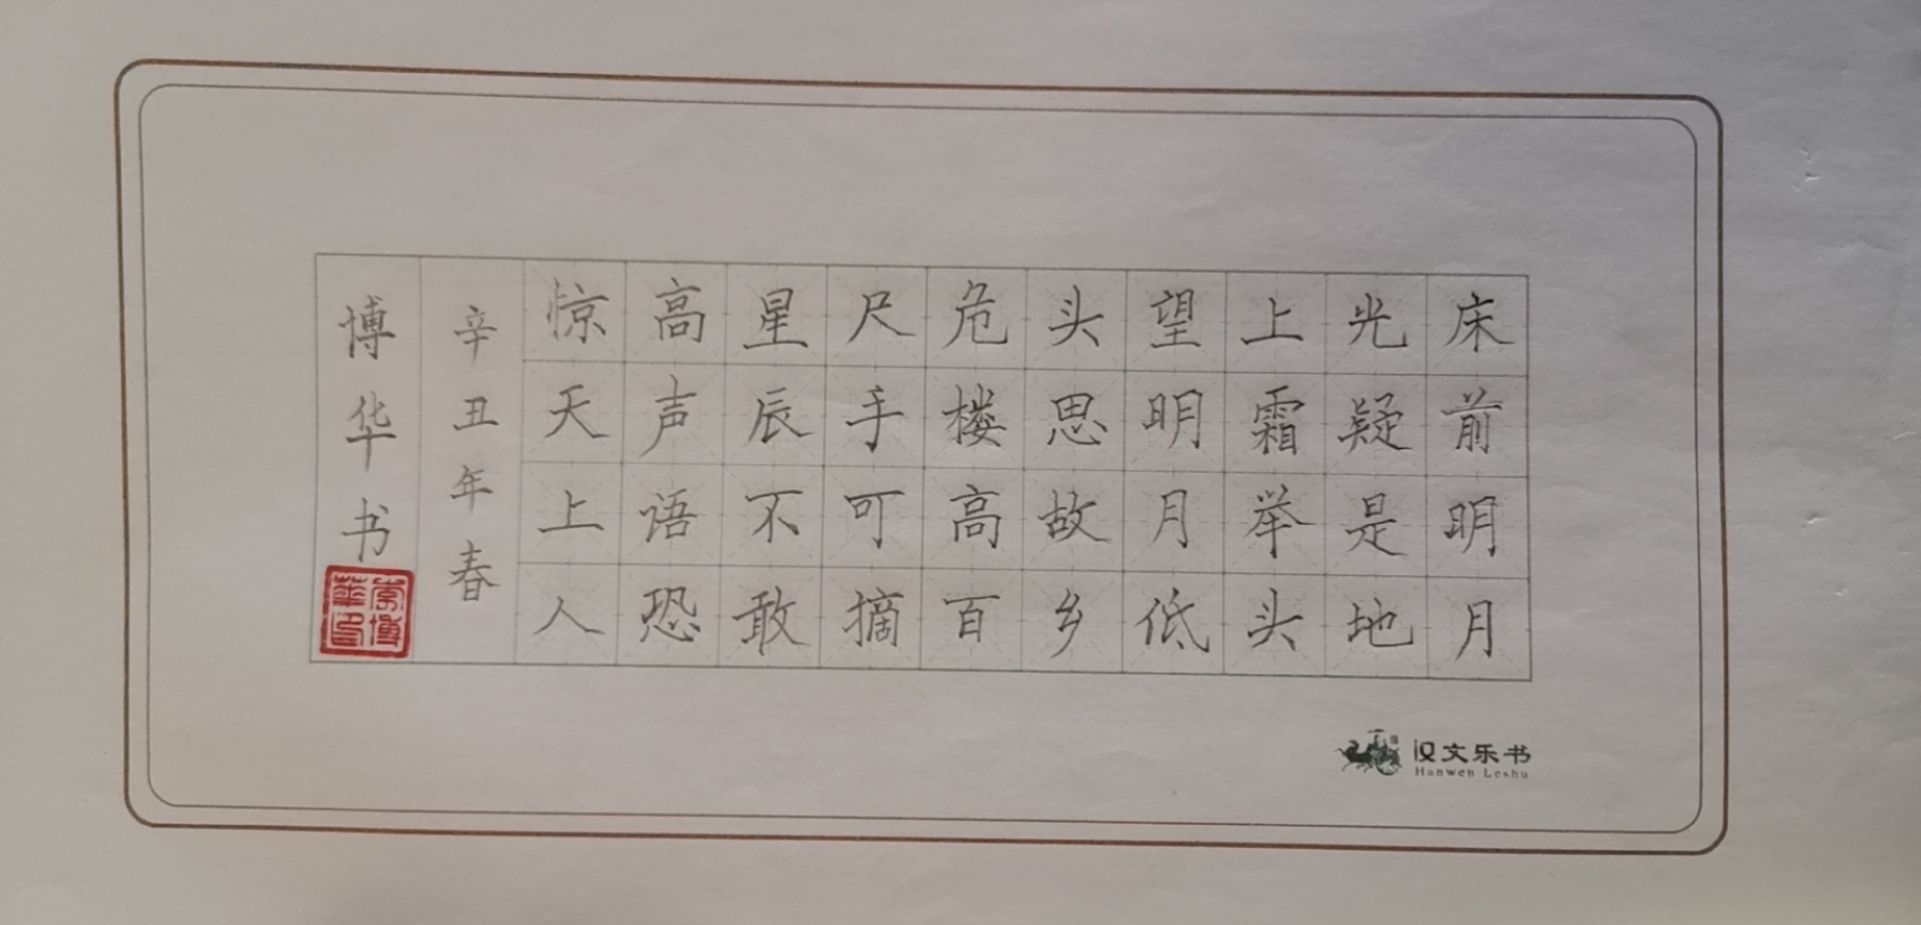 床前明月
光疑是地
上霜举头
望明月低
头思故乡
危楼高百
尺手可摘
星辰不敢
高声语恐
惊天上人
辛丑年春
博华书
李博華印
汉文乐书
Hanwen Leshu